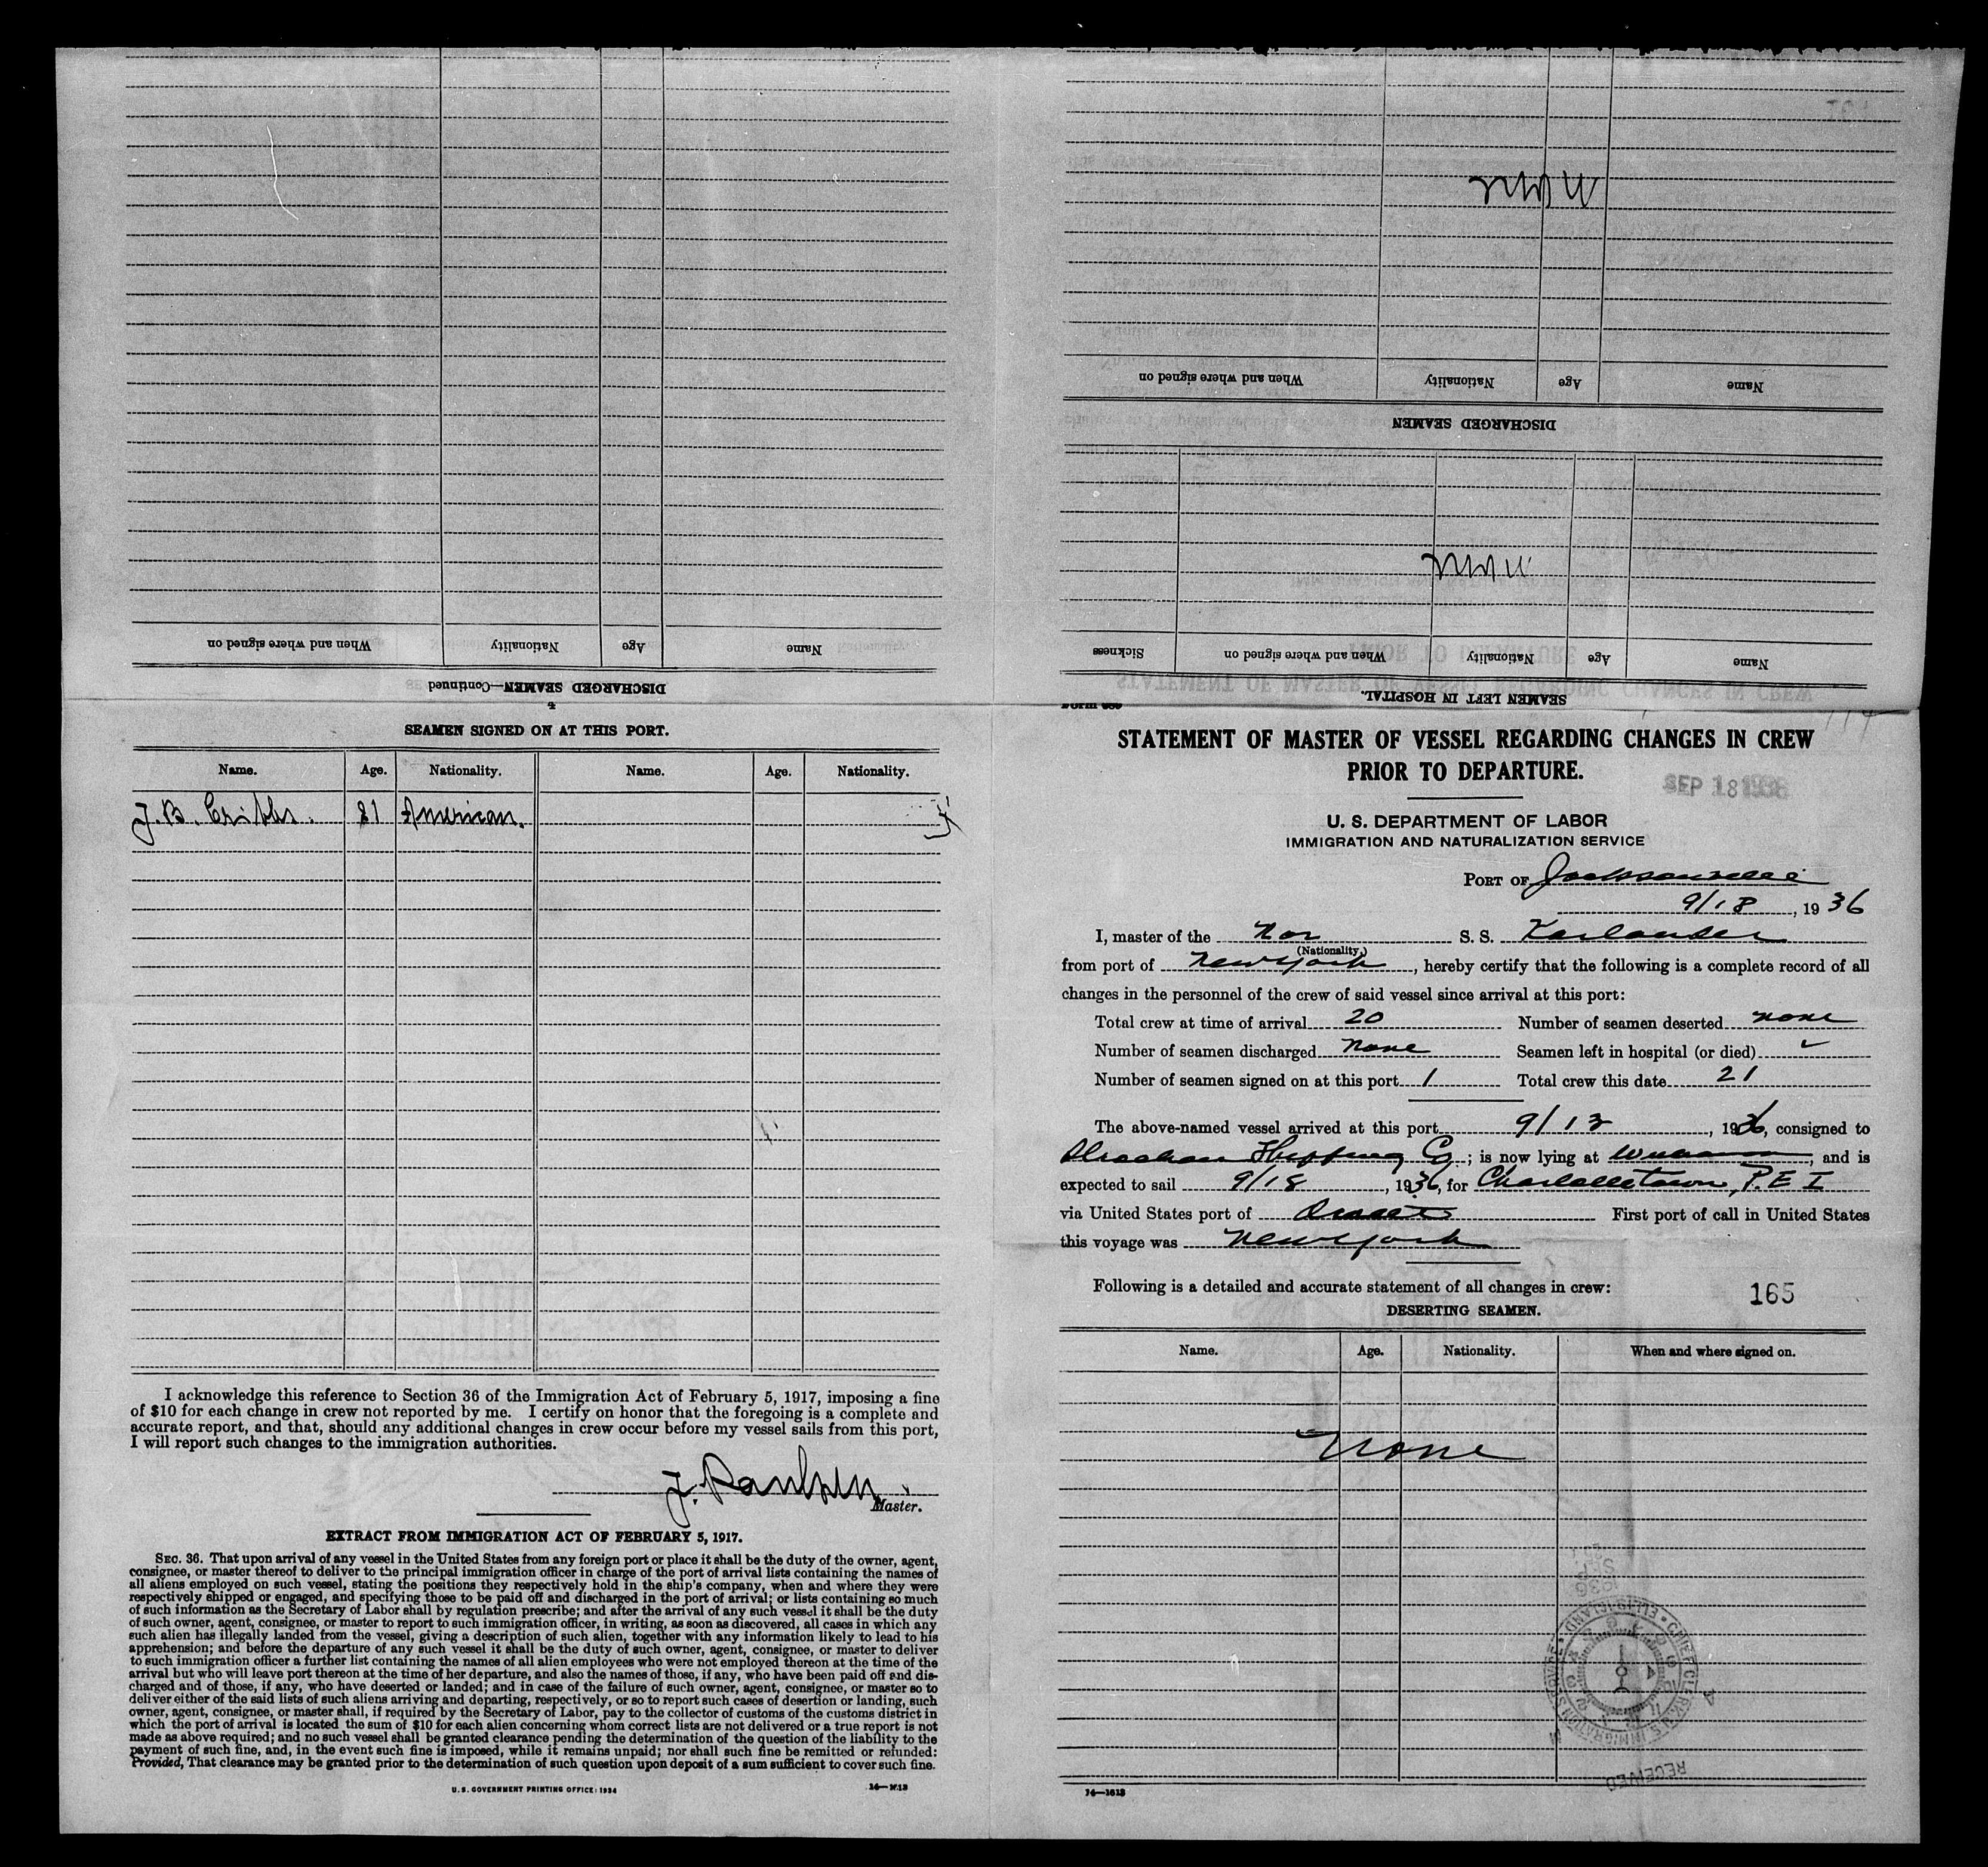 DISCHARGED SEAMEN—Continued
Name Age Nationality When and where signed on
SEAMEN LEFT IN HOSPITAL.
Name Age Nationality When and where signed on Sickness
none
DISCHARGED SEAMEN
Name Age Nationality When and where signed on
none
4
SEAMEN SIGNED ON AT THIS PORT.
Name. Age. Nationality. Name. Age. Nationality.
J. B. 21 American.
I acknowledge this reference to Section 36 of the Immigration Act of February 5, 1917, imposing a fine
of $10 for each change in crew not reported by me. I certify on honor that the foregoing is a complete and
accurate report, and that, should any additional changes in crew occur before my vessel sails from this port,
I will report such changes to the immigration authorities.
J. Paulsen
Master.
EXTRACT FROM IMMIGRATION ACT OF FEBRUARY 5, 1917.
SEC. 36. That upon arrival of any vessel in the United States from any foreign port or place it shall be the duty of the owner, agent,
consignee, or master thereof to deliver to the principal immigration officer in charge of the port of arrival lists containing the names of
all aliens employed on such vessel, stating the positions they respectively hold in the ship's company, when and where they were
respectively shipped or engaged, and specifying those to be paid off and discharged in the port of arrival; or lists containing so much
of such information as the Secretary of Labor shall by regulation prescribe; and after the arrival of any such vessel it shall be the duty
of such owner, agent, consignee, or master to report to such immigration officer, in writing, as soon as discovered, all cases in which any
such alien has illegally landed from the vessel, giving a description of such alien, together with any information likely to lead to his
apprehension; and before the departure of any such vessel it shall be the duty of such owner, agent, consignee, or master to deliver
to such immigration officer a further list containing the names of all alien employees who were not employed thereon at the time of the
arrival but who will leave port thereon at the time of her departure, and also the names of those, if any, who have been paid off and dis-
charged and of those, if any, who have deserted or landed; and in case of the failure of such owner, agent, consignee, or master so to
deliver either of the said lists of such aliens arriving and departing, respectively, or so to report such cases of desertion or landing, such
owner, agent, consignee, or master shall, if required by the Secretary of Labor, pay to the collector of customs of the customs district in
which the port of arrival is located the sum of $10 for each alien concerning whom correct lists are not delivered or a true report is not
made as above required; and no such vessel shall be granted clearance pending the determination of the question of the liability to the
payment of such fine, and, in the event such fine is imposed, while it remains unpaid; nor shall such fine be remitted or refunded:
Provided, That clearance may be granted prior to the determination of such question upon deposit of a sum sufficient to cover such fine.
U. S. GOVERNMENT PRINTING OFFICE: 1934
14—1613
Form 689
STATEMENT OF MASTER OF VESSEL REGARDING CHANGES IN CREW
PRIOR TO DEPARTURE.
SEP 18 1936
U. S. DEPARTMENT OF LABOR
IMMIGRATION AND NATURALIZATION SERVICE
PORT OF Jacksonville
9/18, 1936
I, master of the Nor S. S. Karlander
(Nationality)
from port of New York, hereby certify that the following is a complete record of all
changes in the personnel of the crew of said vessel since arrival at this port:
Total crew at time of arrival 20 Number of seamen deserted none
Number of seamen discharged none Seamen left in hospital (or died)
Number of seamen signed on at this port 1 Total crew this date 21
The above-named vessel arrived at this port 9/13, 1936, consigned to
Strachan Shipping Co; is now lying at, and is
expected to sail 9/18, 1936, for Charlottetown, P. E I
via United States port of Direct First port of call in United States
this voyage was New York
Following is a detailed and accurate statement of all changes in crew:
165
DESERTING SEAMEN.
Name. Age. Nationality. When and where signed on.
None
1936
SEP
CHIEF CLERK'S IMMIGRATION SERVICE ELLIS ISLAND
RECEIVED
14—1613